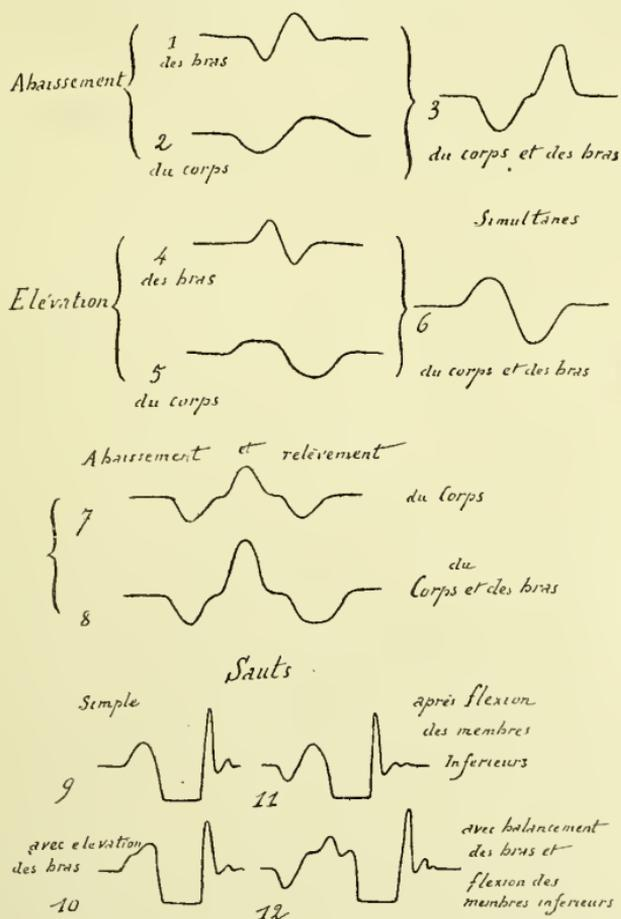 1
des bras
Abaissement
2
du corps
3
du corps et des bras
Simultanés
4
des bras
Elévation
5
du corps
6
du corps et des bras
Abaissement et relèvement
7
du Corps
8
du
Corps et des bras
Sauts
Simple
9
11
après flexion
des membres
Inferieurs
avec elevation
des bras
10
12
avec balancement
des bras et
flexion des
membres inferieurs